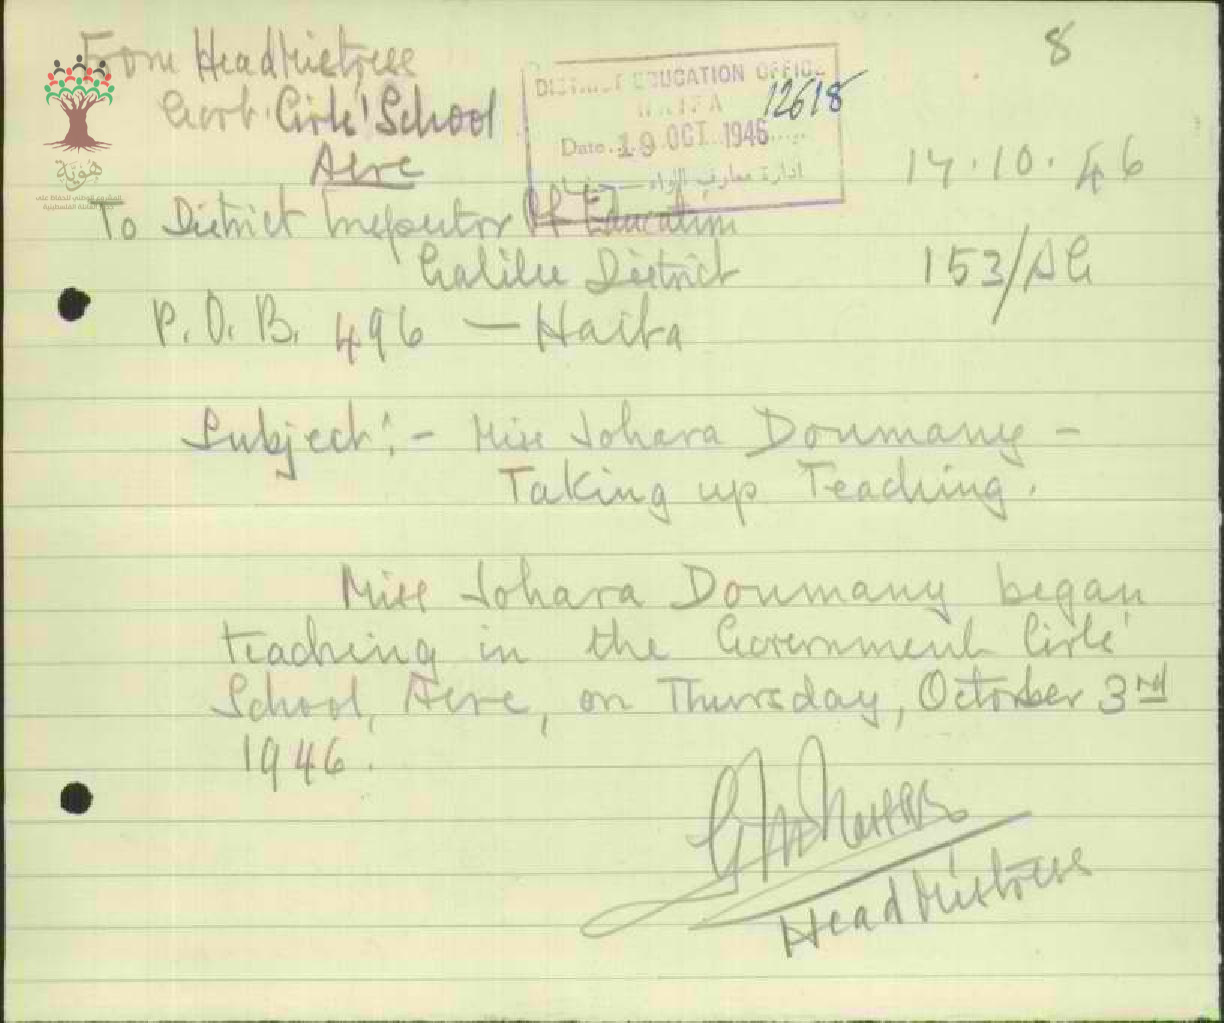 8
From HeadMistress
Govt Girls' School
Acre
DISTRICT EDUCATION OFFICE
HAIFA
12618
Date 19 OCT 1946
ادارة معارف اللواء — حيفا
17.10.46
To District Inspector Of Education
Galilee District
153/AG
P.O.B. 496 — Haifa
Subject:- Miss Johara Doumany -
Taking up Teaching.
Miss Johara Doumany began
teaching in the Government Girls'
School, Acre, on Thursday, October 3rd
1946.
HeadMistress
هُويّة
المشروع الوطني للحفاظ على
العائلة الفلسطينية